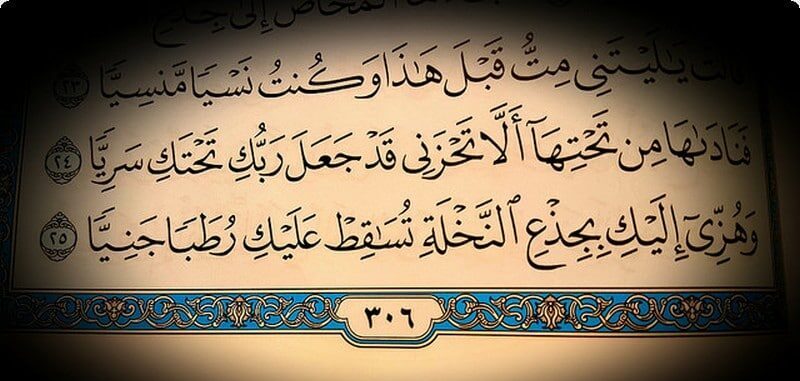 المخاض إلى جذع
قالت يَٰلَيْتَنِى مِتُّ قَبْلَ هَٰذَا وَكُنتُ نَسْيًا مَّنسِيًّا ٢٣
فَنَادَىٰهَا مِن تَحْتِهَآ أَلَّا تَحْزَنِى قَدْ جَعَلَ رَبُّكِ تَحْتَكِ سَرِيًّا ٢٤
وَهُزِّىٓ إِلَيْكِ بِجِذْعِ ٱلنَّخْلَةِ تُسَٰقِطْ عَلَيْكِ رُطَبًا جَنِيًّا ٢٥
٣٠٦